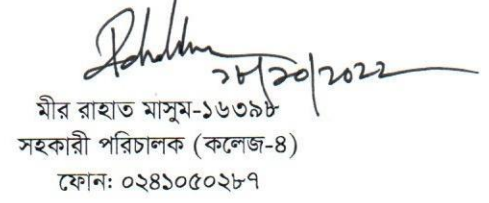 ২৮/১০/২০২২
মীর রাহাত মাসুম-১৬৩৯৮
সহকারী পরিচালক (কলেজ-৪)
ফোন: ০২৪১০৫০২৮৭